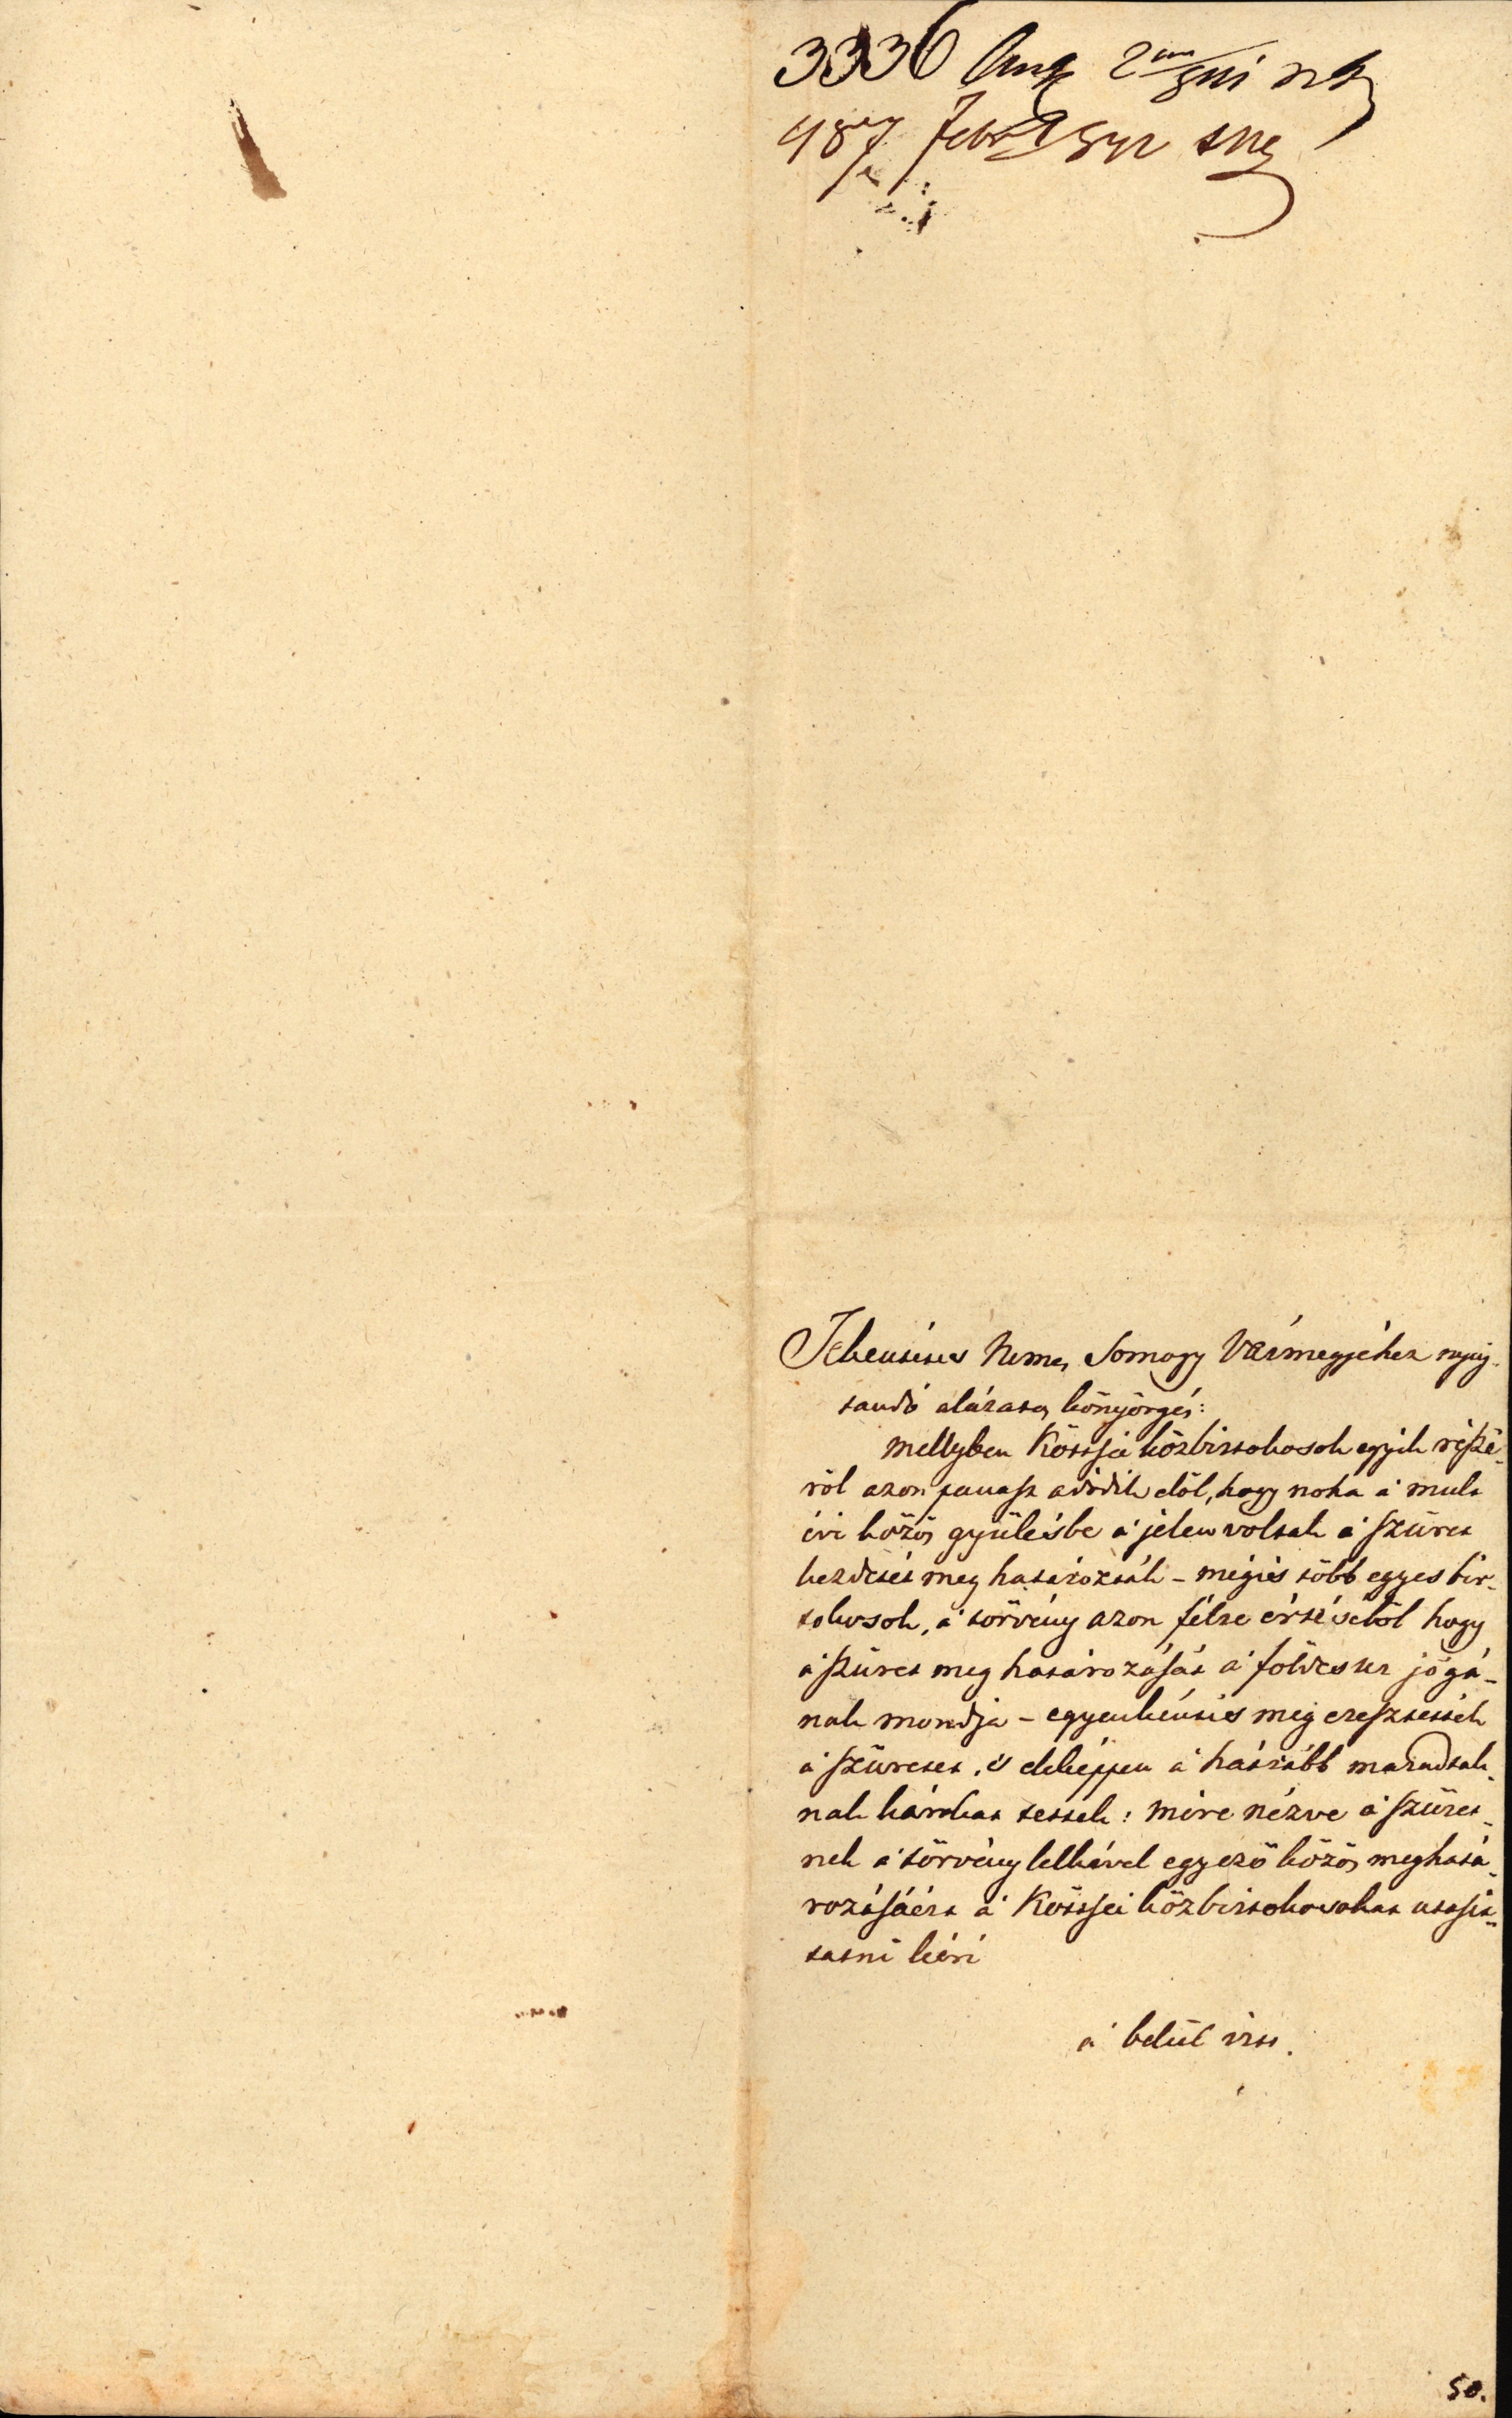 3336
487
Tekéntetes Nemes Somogy Vármegyéhez nyúj-
tandó alázatos könyörgés:
mellyben Köttsei közbirtokosok egyik részé-
röl azon panasz adódik elöl, hogy noha a' mult
évi közös gyülésbe a' jelen voltak a' szüret
kezdetét meg határozták – mégis több egyes bir-
tokosok, a' törvény azon félre értéséböl hogy
a' szüret meg határozását a' földes ur jogá-
nak mondja – egyenkéntis meg eresztették
a' szüretet, 's ekképpen a' hátrább maradtak-
nak károkat tettek: mire nézve a' szüret-
nek a' törvény lelkével egyezö közös meghatá-
rozásáért a' Köttsei közbirtokosokat utasít-
tatni kéri
a' belül irtt.
50.